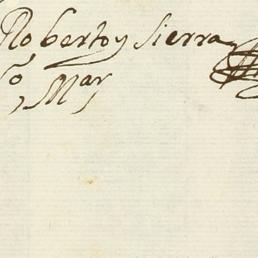 Roberto y Sierra
so, Mar